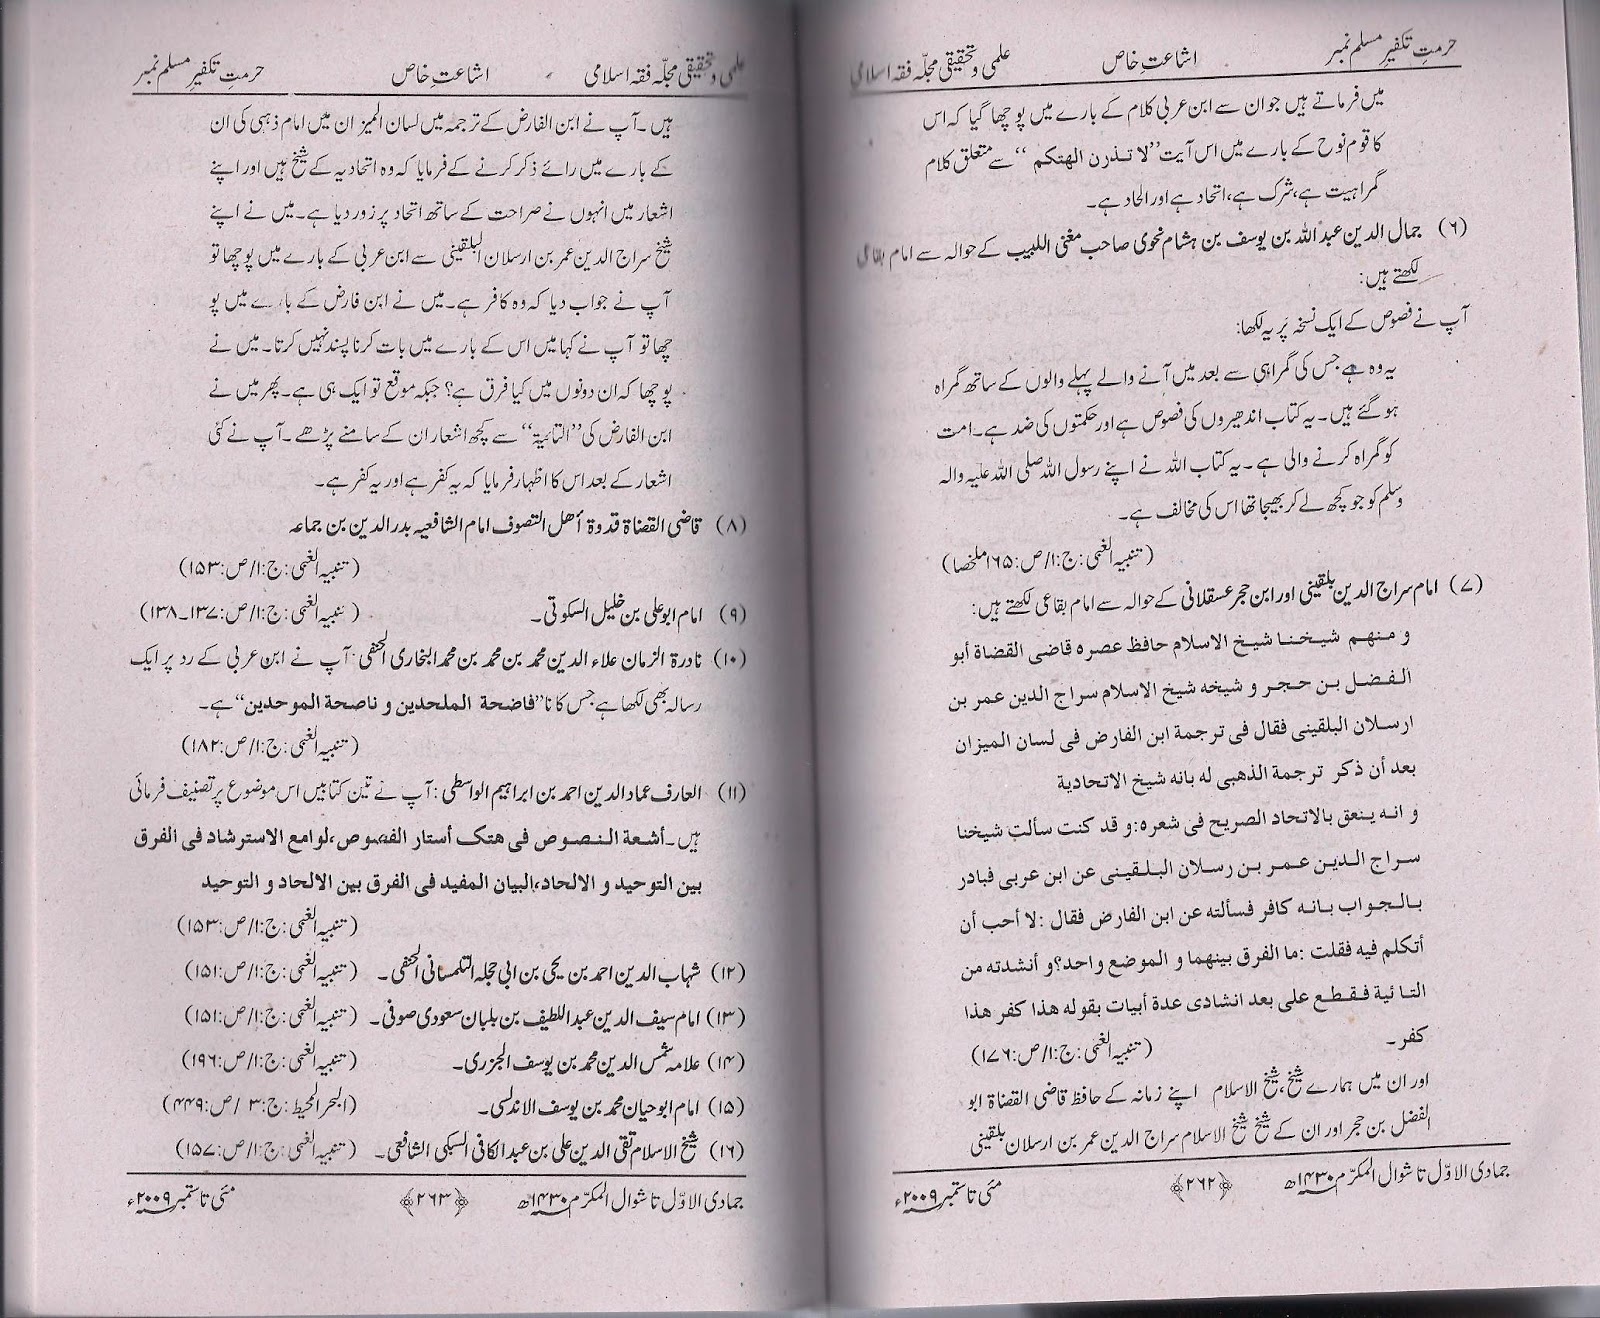 حرمتِ تکفیرِ مسلم نمبر اشاعتِ خاص علمی و تحقیقی مجلّہ فقہ اسلامی
میں فرماتے ہیں جو ان سے ابن عربی کلام کے بارے میں پوچھا گیا کہ اس
کا قوم نوح کے بارے میں اس آیت ’’لا تذرن الھتکم‘‘ سے متعلق کلام
گمراہیت ہے، شرک ہے، اتحاد ہے اور الحاد ہے۔
(۶) جمال الدین عبداللہ بن یوسف بن ہشام نحوی صاحب مغنی اللبیب کے حوالہ سے امام بقاعی
لکھتے ہیں:
آپ نے فصوص کے ایک نسخہ پر یہ لکھا:
یہ وہ ہے جس کی گمراہی سے بعد میں آنے والے پہلے والوں کے ساتھ گمراہ
ہو گئے ہیں۔ یہ کتاب اندھیروں کی فصوص ہے اور حکمتوں کی ضد ہے۔ امت
کو گمراہ کرنے والی ہے۔ یہ کتاب اللہ نے اپنے رسول اللہ صلی اللہ علیہ والہ
وسلم کو جو کچھ لے کر بھیجا تھا اس کی مخالف ہے۔
(تنبیہ الغبی: ج:۱/ص:۱۶۵ ملخصا)
(۷) امام سراج الدین بلقینی اور ابن حجر عسقلانی کے حوالہ سے امام بقاعی لکھتے ہیں:
و منهم شيخنا شيخ الاسلام حافظ عصره قاضى القضاة أبو
الفضل بن حجر و شيخه شيخ الاسلام سراج الدين عمر بن
ارسلان البلقينى فقال فى ترجمة ابن الفارض فى لسان الميزان
بعد أن ذكر ترجمة الذهبى له بانه شيخ الاتحادية
و انه ينعق بالاتحاد الصريح فى شعره: و قد كنت سألت شيخنا
سراج الدين عمر بن رسلان البلقينى عن ابن عربى فبادر
بالجواب بانه كافر فسألته عن ابن الفارض فقال: لا أحب أن
أتكلم فيه فقلت: ما الفرق بينهما و الموضع واحد؟ و أنشدته من
التائية فقطع على بعد انشادى عدة أبيات بقوله هذا كفر هذا
كفر۔ (تنبیہ الغبی: ج:۱/ص:۱۷۶)
اور ان میں ہمارے شیخ، شیخ الاسلام اپنے زمانہ کے حافظ قاضی القضاۃ ابو
الفضل بن حجر اور ان کے شیخ شیخ الاسلام سراج الدین عمر بن ارسلان بلقینی
جمادی الاوّل تا شوال المکرّم ۱۴۳۰ھ ﴿۲۶۲﴾ مئی تا ستمبر ۲۰۰۹ء
علمی و تحقیقی مجلّہ فقہ اسلامی اشاعتِ خاص حرمتِ تکفیرِ مسلم نمبر
ہیں۔ آپ نے ابن الفارض کے ترجمہ میں لسان المیزان میں امام ذہبی کی ان
کے بارے میں رائے ذکر کرنے کے فرمایا کہ وہ اتحادیہ کے شیخ ہیں اور اپنے
اشعار میں انہوں نے صراحت کے ساتھ اتحاد پر زور دیا ہے۔ میں نے اپنے
شیخ سراج الدین عمر بن ارسلان البلقینی سے ابن عربی کے بارے میں پوچھا تو
آپ نے جواب دیا کہ وہ کافر ہے۔ میں نے ابن فارض کے بارے میں پو
چھا تو آپ نے کہا میں اس کے بارے میں بات کرنا پسند نہیں کرتا۔ میں نے
پوچھا کہ ان دونوں میں کیا فرق ہے؟ جبکہ موقع تو ایک ہی ہے۔ پھر میں نے
ابن الفارض کی ’’التائیۃ‘‘ سے کچھ اشعار ان کے سامنے پڑھے۔ آپ نے کئی
اشعار کے بعد اس کا اظہار فرمایا کہ یہ کفر ہے اور یہ کفر ہے۔
(۸) قاضی القضاۃ قدوۃ أھل التصوف امام الشافعیہ بدر الدین بن جماعہ
(تنبیہ الغبی: ج:۱/ص:۱۵۳)
(۹) امام ابو علی بن خلیل السکوتی۔ (تنبیہ الغبی: ج:۱/ص:۱۳۷۔۱۳۸)
(۱۰) نادرۃ الزمان علاء الدین محمد بن محمد بن محمد البخاری الحنفی آپ نے ابن عربی کے رد پر ایک
رسالہ بھی لکھا ہے جس کا نا ’’فاضحة الملحدین و ناصحة الموحدین‘‘ ہے۔
(تنبیہ الغبی: ج:۱/ص:۱۸۲)
(۱۱) العارف عماد الدین احمد بن ابراہیم الواسطی: آپ نے تین کتابیں اس موضوع پر تصنیف فرمائی
ہیں۔ أشعة النصوص فى هتك أستار الفصوص، لوامع الاسترشاد فى الفرق
بين التوحيد و الالحاد، البيان المفيد فى الفرق بين الالحاد و التوحيد
(تنبیہ الغبی: ج:۱/ص:۱۵۳)
(۱۲) شہاب الدین احمد بن یحیی بن ابی حجلہ التلمسانی الحنفی۔ (تنبیہ الغبی: ج:۱/ص:۱۵۱)
(۱۳) امام سیف الدین عبداللطیف بن بلبان سعودی صوفی۔ (تنبیہ الغبی: ج:۱/ص:۱۵۱)
(۱۴) علامہ شمس الدین محمد بن یوسف الجزری۔ (تنبیہ الغبی: ج:۱/ص:۱۹۶)
(۱۵) امام ابو حیان محمد بن یوسف الاندلسی۔ (البحر المحیط: ج:۳ /ص:۴۴۹)
(۱۶) شیخ الاسلام تقی الدین علی بن عبدالکافی السبکی الشافعی۔ (تنبیہ الغبی: ج:۱/ص:۱۵۷)
جمادی الاوّل تا شوال المکرّم ۱۴۳۰ھ ﴿۲۶۳﴾ مئی تا ستمبر ۲۰۰۹ء